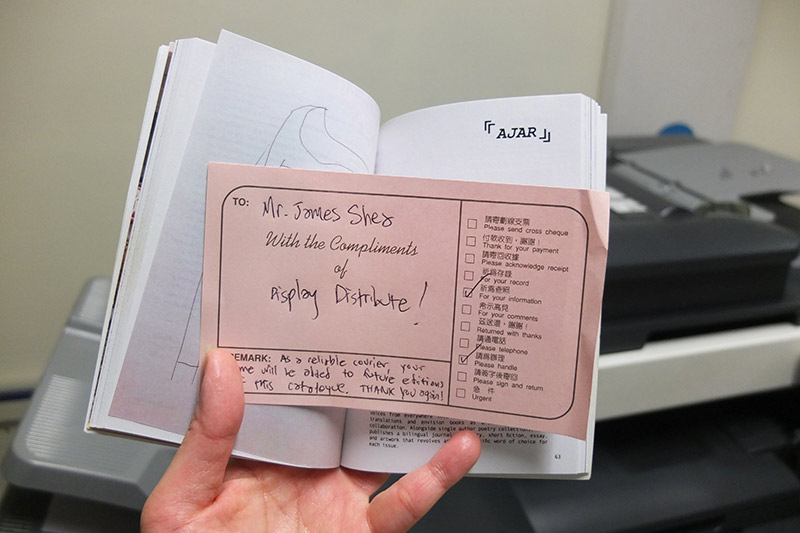 『AJAR』
TO: Mr. James Shea
With the Compliments
of
Display Distribute!
REMARK: As a reliable courier, your
will be added to future editions
this catalogue. THANK YOU again!
請寄劃線支票
Please send cross cheque
付款收到，謝謝！
Thank for your payment
請寄回收據
Please acknowledge receipt
祈為存錄
For your record
祈為查照
For your information
希示高見
For your comments
茲送還，謝謝！
Returned with thanks
請通電話
Please telephone
請為辦理
Please handle
請簽字後寄回
Please sign and return
急 件
Urgent
voices from everywhere
translations and envision books as
collaboration. Alongside single author poetry
publishes a bilingual journal short fiction, essay,
and artwork that revolves word of choice for
each issue.
63